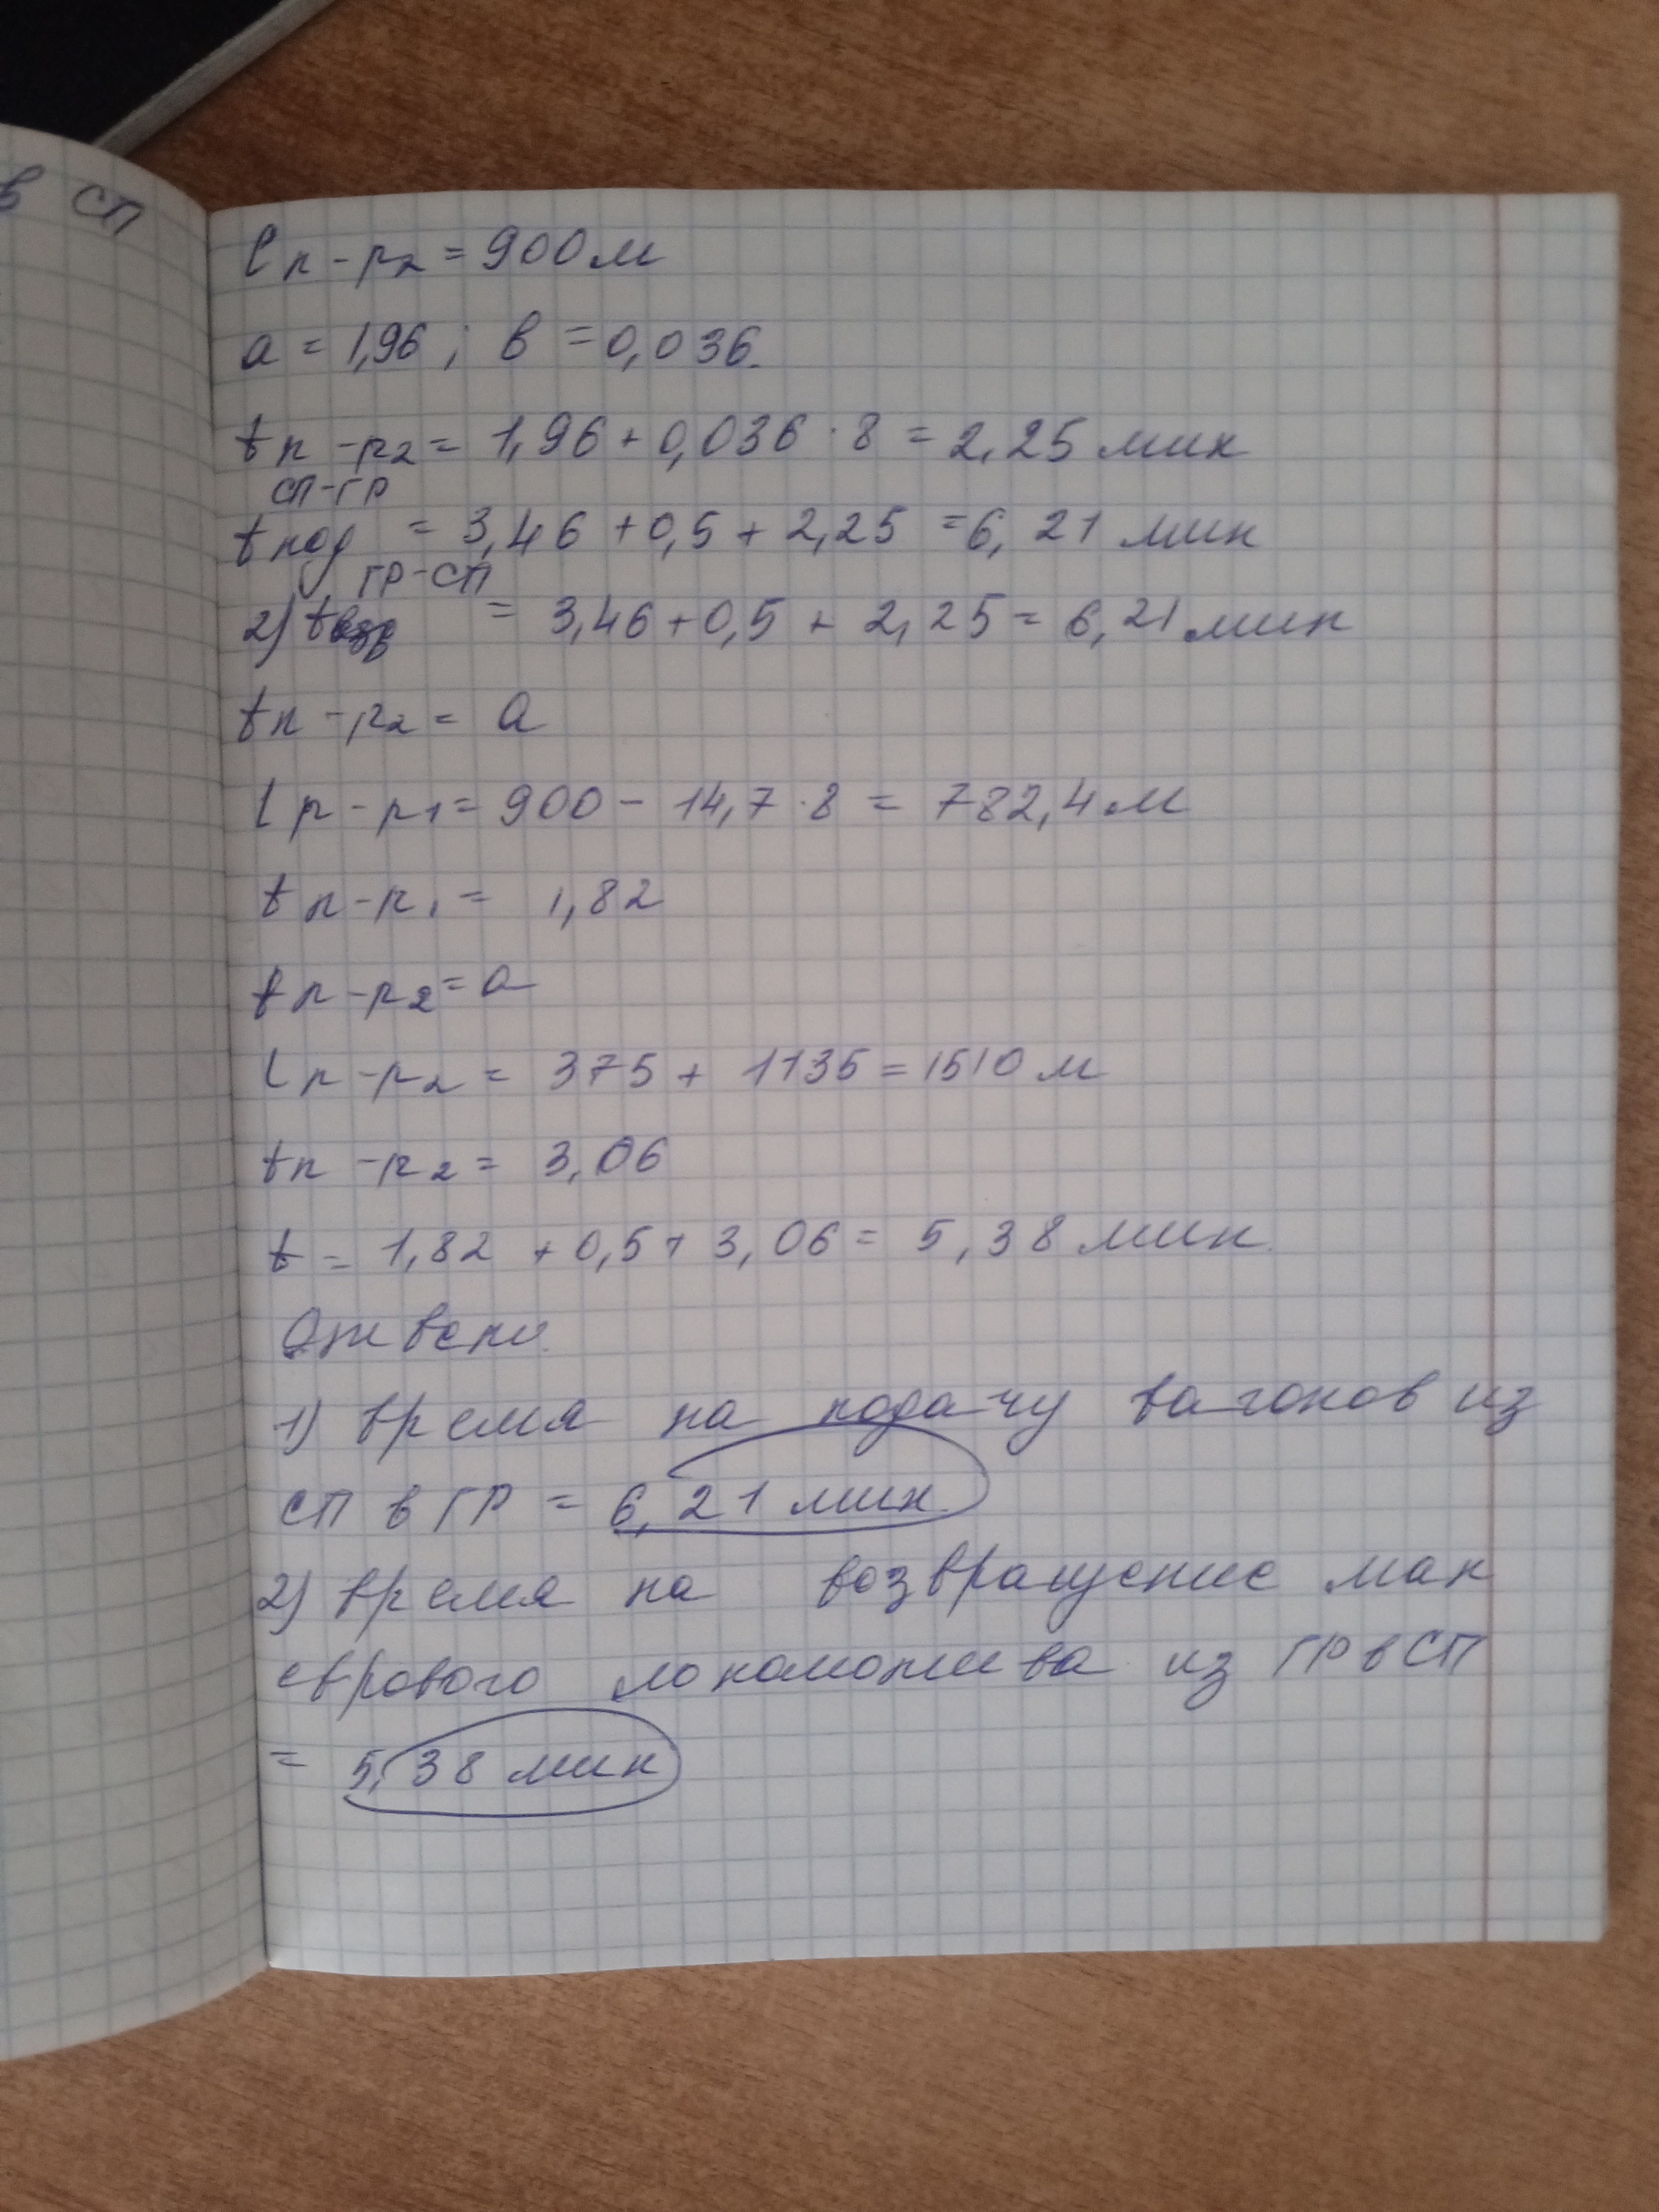 в СП
l п-р2 = 900 м
a = 1,96 ; в = 0,036.
t п-р2 = 1,96 + 0,036 · 8 = 2,25 мин
СП-ГР
t под = 3,46 + 0,5 + 2,25 = 6,21 мин
ГР-СП
2) t возв = 3,46 + 0,5 + 2,25 = 6,21 мин
t п-р2 = a
l р-р1 = 900 - 14,7 · 8 = 782,4 м
t п-р1 = 1,82
t п-р2 = a
l п-р2 = 375 + 1135 = 1510 м
t п-р2 = 3,06
t = 1,82 + 0,5 + 3,06 = 5,38 мин.
Ответ.
1) время на подачу вагонов из
СП в ГР = 6,21 мин
2) время на возвращение ман
еврового локомотива из ГР в СП
= 5,38 мин